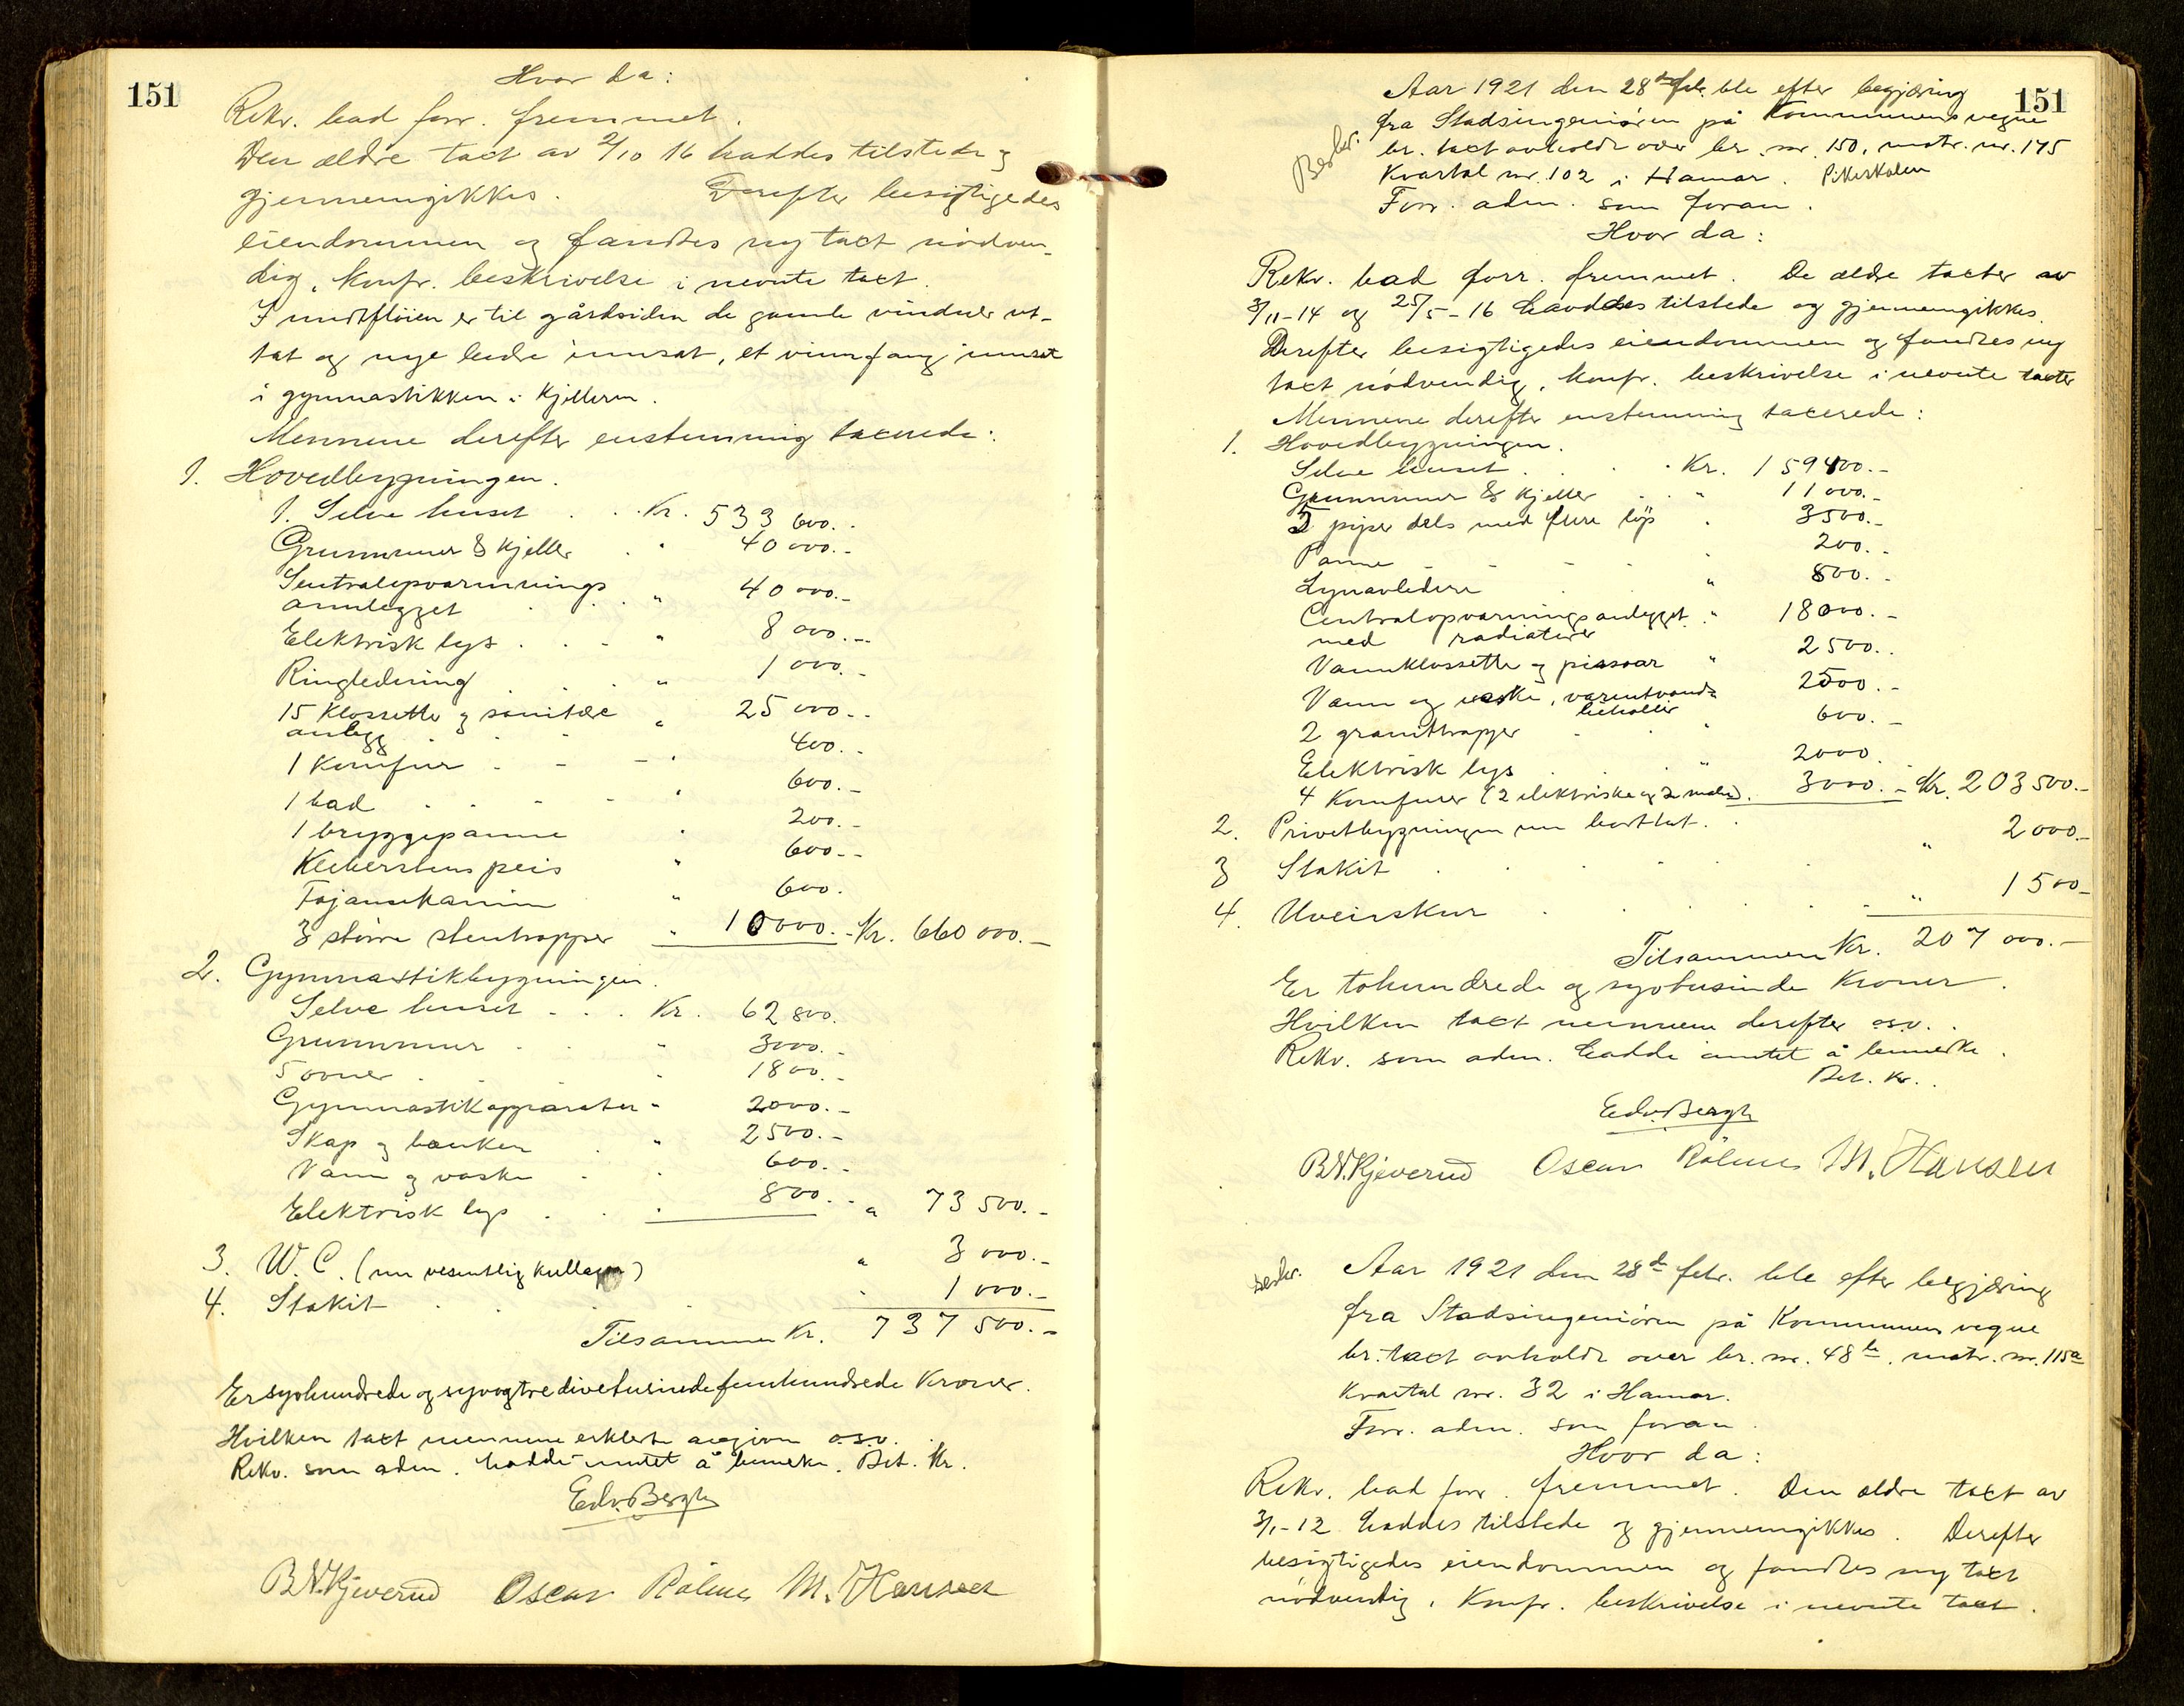 151
Hvor da:
Rekv. bad forr. fremmet.
Den ældre taxt av 2/10 16 haddes tilstede og
gjennemgikkes. Derefter besigtigedes
eiendommen og fandtes ny taxt nödven-
dig, konfr. beskrivelse i nevnte taxt.
I midtflöien er til gårdsiden de gamle vinduer ut-
tat og nye bedre innsat, et vinnfang innsat
i gymnastikken i Kjelleren.
Mennene derefter enstemmig taxerede:
1. Hovedbygningen.
1. Selve huset . . Kr. 533 600.-
Grunnmur & Kjeller . " 40 000.-
Sentralopvarmnings
annlegget . . " 40 000.-
Elektrisk lys . . - " 8 000.-
Ringledning . . . " 1 000.-
15 Klossetter og sanitære
anlegg . . " 25 000.-
1 Komfur . - - " 400.-
1 bad . . - . " 600.-
1 bryggepanne " 200.-
Kleberstens peis " 600.-
Fajansekamin " 600.
3 större stentrapper " 10 000.- Kr. 660 000.-
2. Gymnastikbygningen.
Selve huset . . . Kr. 62 800.
Grunnmur . . " 3000.-
5 ovner . . . 1800.-
Gymnastikapparater " 2000.-
Skap og benker . " 2500.-
Vann og vaske . . 600.-
Elektrisk lys . . . 800.- " 73 500.-
3. W. C. (nu vesentlig kullager) " 3 000.-
4. Stakit . . . . 1 000.-
Tilsammen Kr. 737 500.-
Er syvhundrede og syvogtredivetusindefemhundrede Kroner.
Hvilken taxt mennene erklerte avgiven o.s.v.
Rekv. som adm. hadde intet å bemerke. Bet. Kr.
Edv. Bergh
B.N. Kjeverud Oscar Rölme M. Hansen
151
Beskr.
Aar 1921 den 28de febr. ble efter begjæring
fra Stadsingeniören på Kommunens vegne
br. taxt avholdt over br. nr. 150, matr. nr. 175
Kvartal nr. 102 i Hamar. Pikeskolen
Forr. adm. som foran.
Hvor da:
Rekv. bad forr. fremmet. De ældre taxter av
3/11-14 og 25/5-16 havddes tilstede og gjennemgikkes.
Derefter besigtigedes eiendommen og fandtes ny
taxt nödvendig, konfr. beskrivelse i nevnte taxter
Mennene derefter enstemmig taxerede:
1. Hovedbygningen.
Selve huset . . . Kr. 159400.-
Grunnmur & Kjeller . . " 11 000.-
5 piper dels med flere löp . 3500.-
Panne - - - . 200.-
Lynavledere . " 800.-
Centralopvarmningsanlegget " 18000.-
med radiatorer
Vannklossetter og pissoar " 2500..
Vann og vaske, varmtvands
beholder 2500.-
2 granittrapper . . 600.-
Elektrisk lys . . " 2000
4 Komfurer (2 elektriske og 2 andre). 3000.- Kr. 203 500.-
2. Privetbygningen nu borttat. .
3 Stakit . . . . . " 2 000.-
4. Uveirskur . . . . . " 1 500-
Tilsammen Kr. 207 000.-
Er tohundrede og syvtusinde Kroner.
Hvilken taxt mennene derefter o.s.v. .
Rekv. som adm. hadde intet å bemerke.
Bet. Kr. .
Edv. Bergh
B.N. Kjeverud Oscar Rölme M. Hansen
Beskr.
Aar 1921 den 28de febr. ble efter begjæring
fra Stadsingeniören på Kommunens vegne
br. taxt avholdt over br. nr. 48 b. matr. nr. 115a
Kvartal nr. 32 i Hamar.
Forr. adm. som foran.
Hvor da:
Rekv. bad forr. fremmet. Den ældre taxt av
3/1-12 haddes tilstede og gjennemgikkes. Derefter
besigtigedes eiendommen og fandtes ny taxt
nödvendig, Konfr. beskrivelse i nevnte taxt.